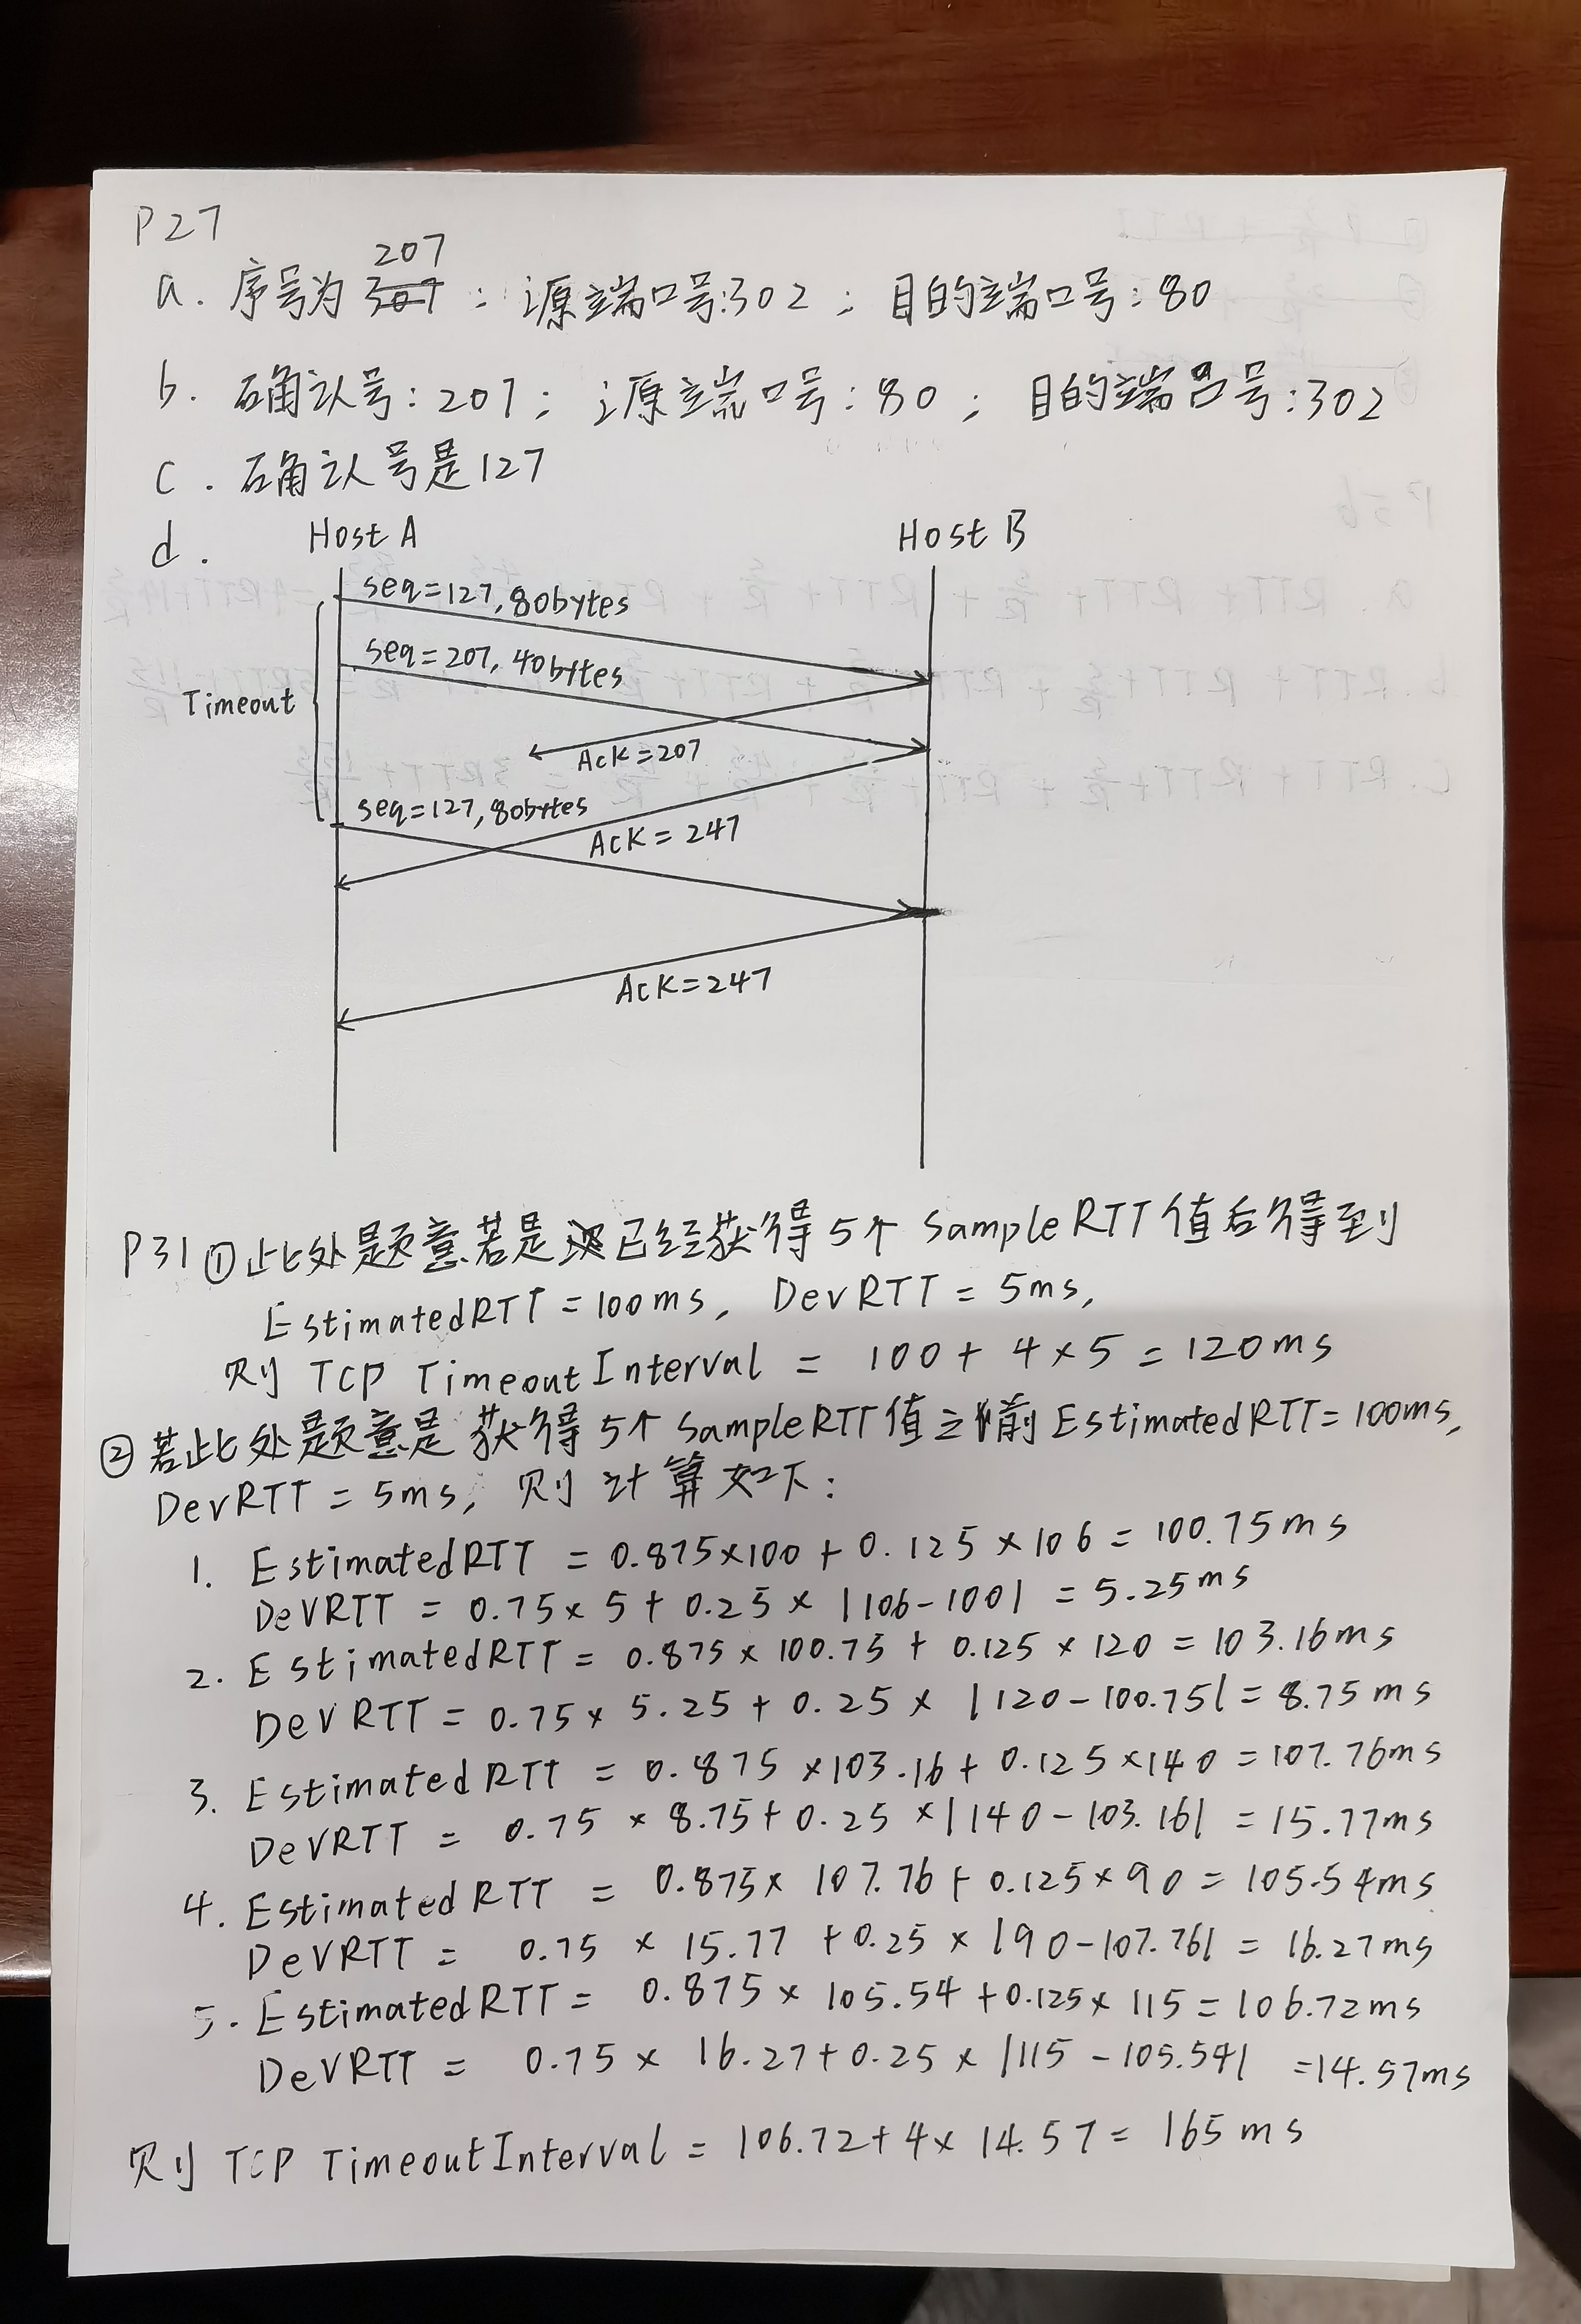 P27
207
a. 序号为 307 ; 源端口号:302 ; 目的端口号:80
b. 确认号:207; 源端口号:80 ; 目的端口号:302
c. 确认号是127
d. Host A Host B
seq=127,80bytes
seq=207,40bytes
Timeout
Ack=207
seq=127,80bytes
Ack=247
Ack=247
P31 ①此处题意若是已经获得5个SampleRTT值后得到
EstimatedRTT=100ms, DevRTT=5ms,
则 TCP TimeoutInterval = 100+4×5=120ms
②若此处题意是获得5个SampleRTT值之前EstimatedRTT=100ms,
DevRTT=5ms, 则计算如下:
1. EstimatedRTT = 0.875×100+0.125×106=100.75ms
DevRTT = 0.75×5+0.25×|106-100|=5.25ms
2. EstimatedRTT = 0.875×100.75+0.125×120=103.16ms
DevRTT = 0.75×5.25+0.25×|120-100.75|=8.75ms
3. EstimatedRTT = 0.875×103.16+0.125×140=107.76ms
DevRTT = 0.75×8.75+0.25×|140-103.16|=15.77ms
4. EstimatedRTT = 0.875×107.76+0.125×90=105.54ms
DevRTT = 0.75×15.77+0.25×|90-107.76|=16.27ms
5. EstimatedRTT = 0.875×105.54+0.125×115=106.72ms
DevRTT = 0.75×16.27+0.25×|115-105.54|=14.57ms
则 TCP TimeoutInterval = 106.72+4×14.57=165ms